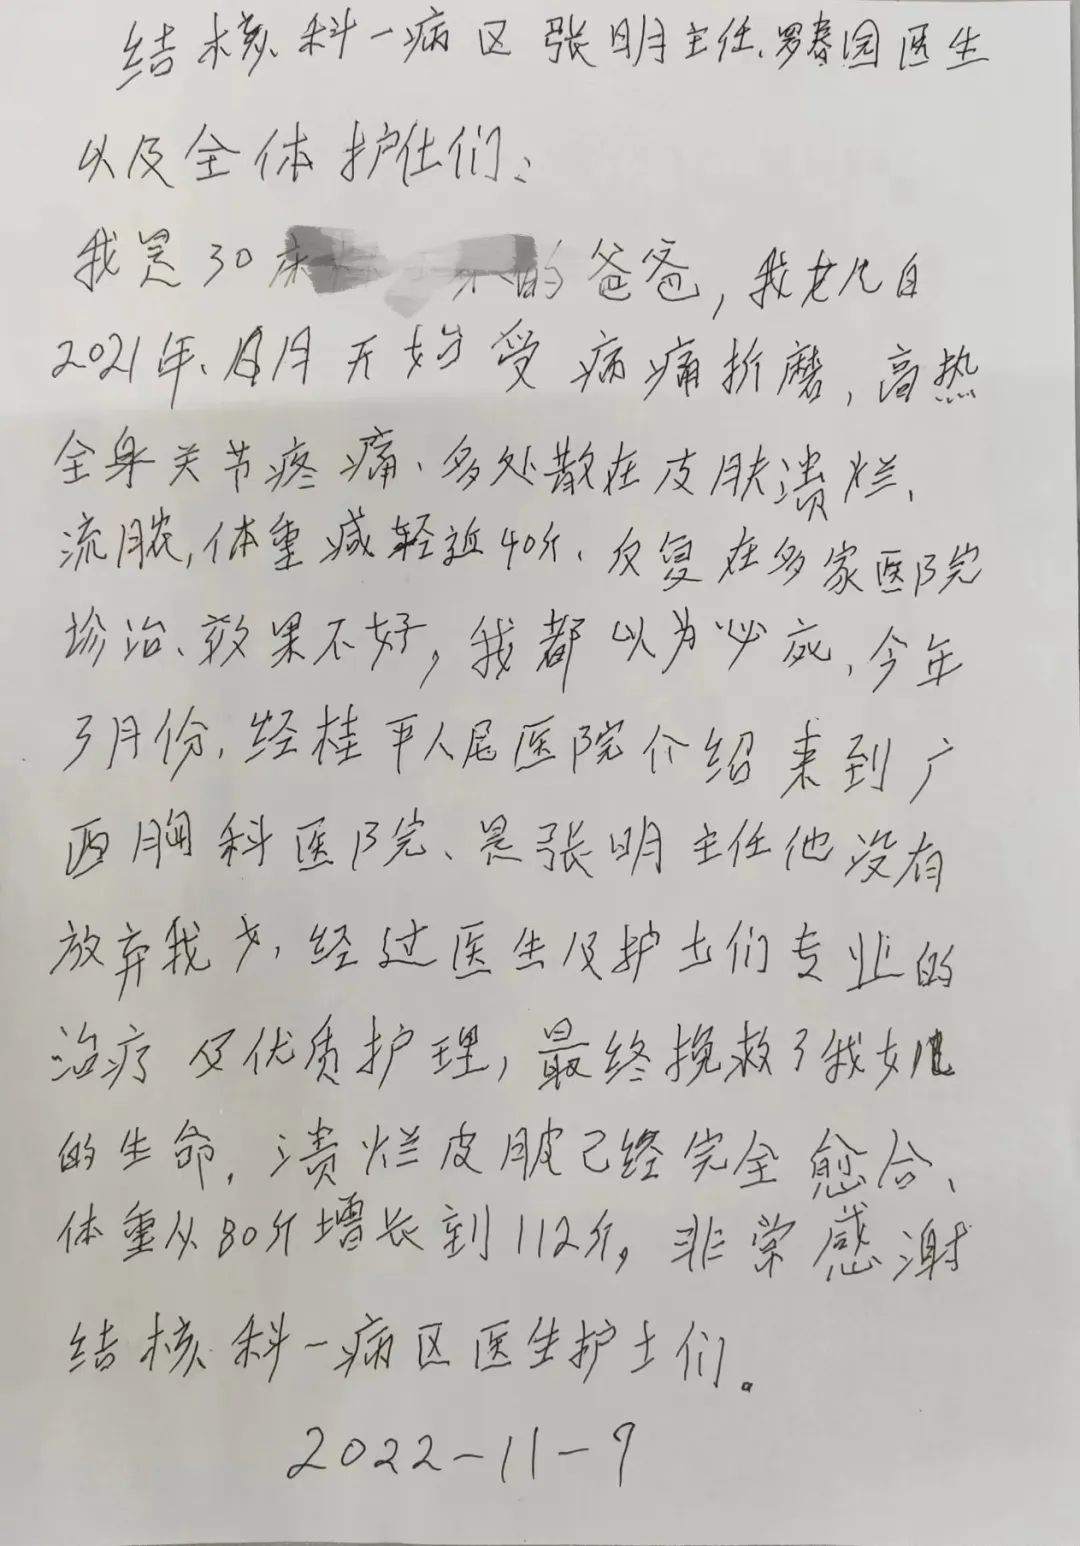 结核科一病区张明主任、罗春园医生
以及全体护仕们：
我是30床的爸爸，我女儿自
2021年、月开始受病痛折磨，高热
全身关节疼痛、多处散在皮肤溃烂、
流脓，体重减轻近40斤、反复在多家医院
诊治、效果不好，我都以为必死、今年
3月份，经桂平人民医院介绍来到广
西胸科医院、是张明主任他没有
放弃我女，经过医生及护士们专业的
治疗及优质护理，最终挽救了我女儿
的生命，溃烂皮肤已经完全愈合、
体重从80斤增长到112斤，非常感谢
结核科一病区医生护士们。
2022-11-9